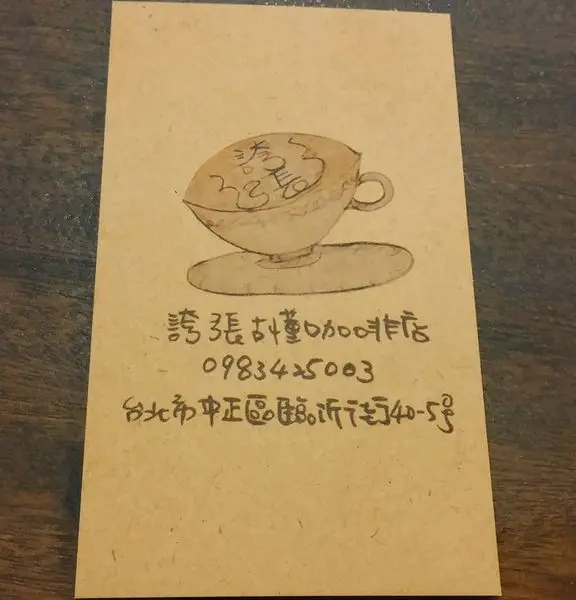 誇張
誇張古懂咖啡店
0983425003
台北市中正區臨沂街40-5号